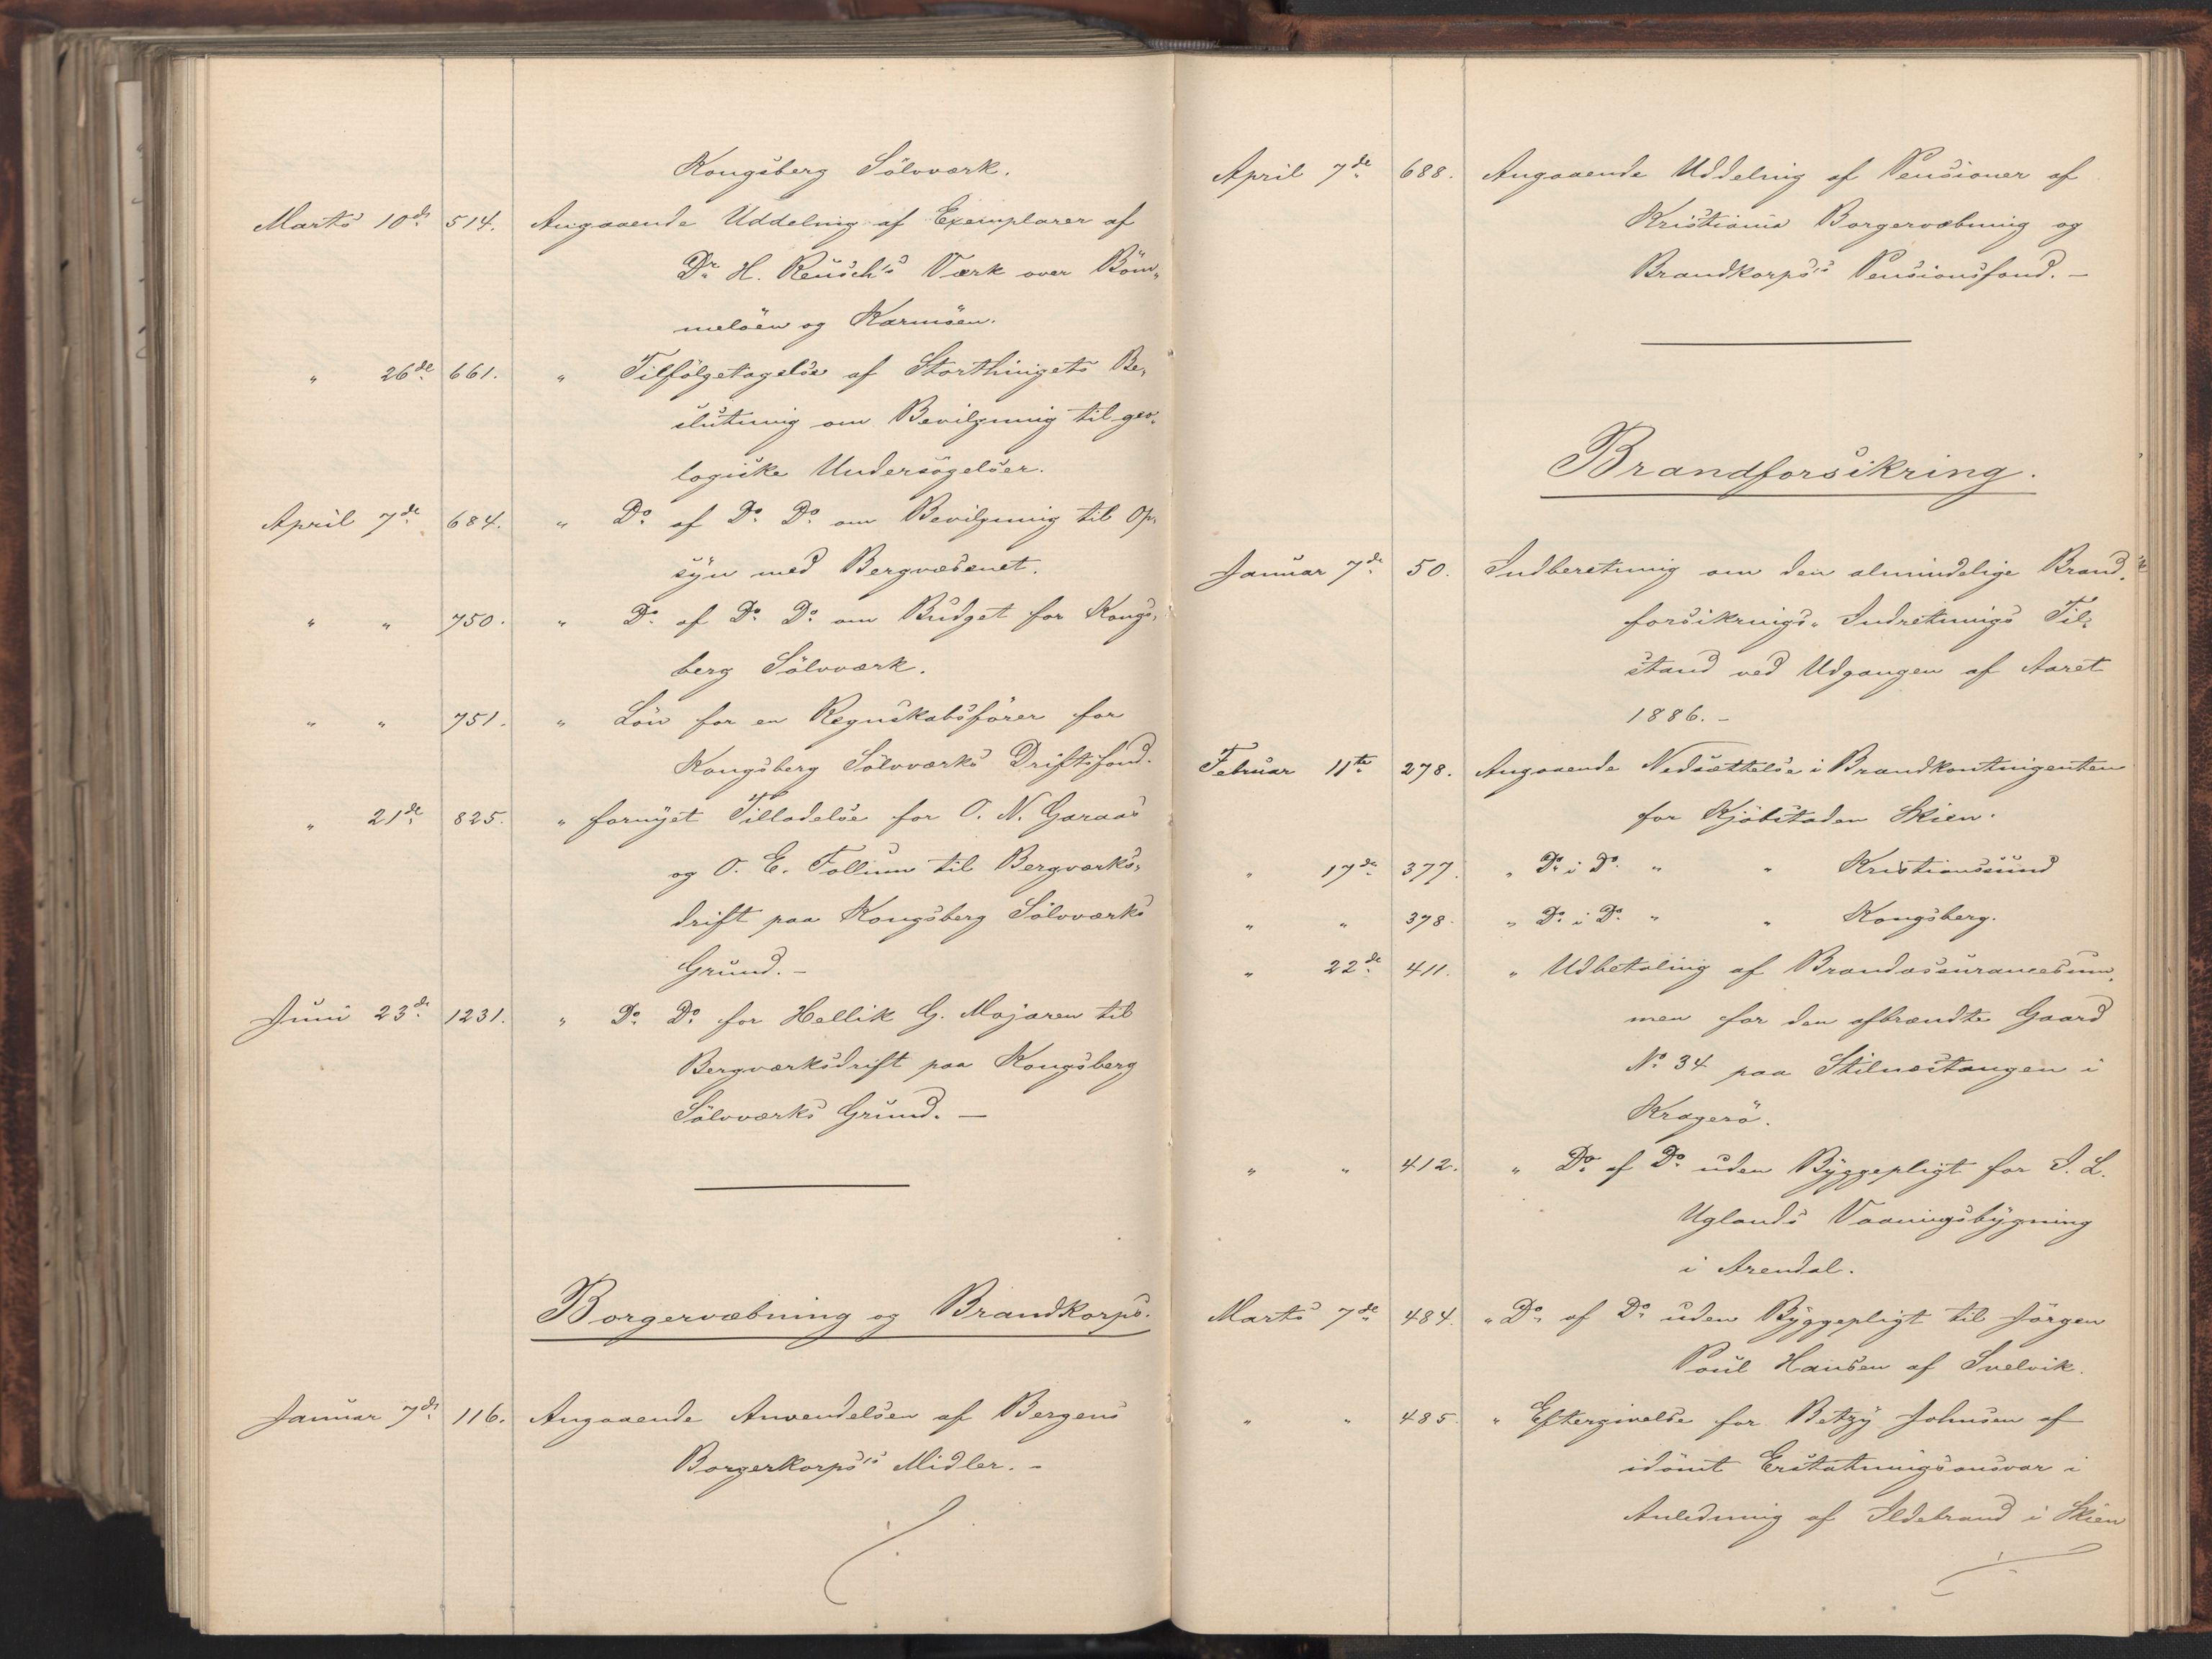 Kongsberg Sölvværk.
Marts 10de 514. Angaaende Uddeling af Exemplarer af
Dr. H. Reusch's Værk over Böm„
melöen og Karmöen.
„ 26de 661. „ Tilfölgetagelse af Storthingets Be„
slutning om Bevilgning til geo„
logiske Undersögelser.
April 7de 684. „ Do af Do Do om Bevilgning til Op„
syn med Bergvæsenet.
„ „ 750. „ Do af Do Do om Budget for Kongs„
berg Sölvværk.
„ „ 751. „ Lön for en Regnskabsförer for
Kongsberg Sölvværks Driftsfond.
„ 21de 825. „ fornyet Tilladelse for O. N. Garaas
og O. E. Follum til Bergværks„
drift paa Kongsberg Sölvværks
Grund. –
Juni 23de 1231. „ Do Do for Hellik G. Mojaren til
Bergværksdrift paa Kongsberg
Sölvværks Grund. –
Borgervæbning og Brandkorps.
Januar 7de 116. Angaaende Anvendelsen af Bergens
Borgerkorps's Midler. –
April 7de 688. Angaaende Uddeling af Pensioner af
Kristiania Borgervæbning og
Brandkorps's Pensionsfond. –
Brandforsikring.
Januar 7de 50. Indberetning om den almindelige Brand„
forsikrings„ Indretnings Til„
stand ved Udgangen af Aaret
1886. –
Februar 11te 278. Angaaende Nedsættelse i Brandkontingenten
for Kjöbstaden Skien.
„ 17de 377. „ Do i Do „ „ Kristianssund
„ „ 378. „ Do i Do „ „ Kongsberg.
„ 22de 411. „ Udbetaling af Brandassurancesum„
men for den afbrændte Gaard
No 34 paa Stilnestangen i
Kragerö.
„ „ 412. „ Do af Do uden Byggepligt for I. L.
Uglands Vaaningsbygning
i Arendal.
Marts 7de 484. „ Do af Do uden Byggepligt til Jörgen
Poul Hansen af Svelvik.
„ „ 485. „ Eftergivelse for Betzy Johnsen af
idömt Erstatningsansvar i
Anledning af Ildebrand i Skien